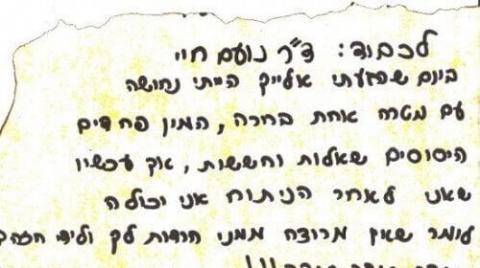 לכבוד: ד"ר נועם חיי
ביום שהגעתי אלייך הייתי נחושה
עם מטרה אחת ברורה, המון פחדים
היסוסים שאלות וחששות, אך עכשיו
שאני לאחר הניתוח אני יכולה
לומר שאין מרוצה ממני תודות לך ולידי הזהב